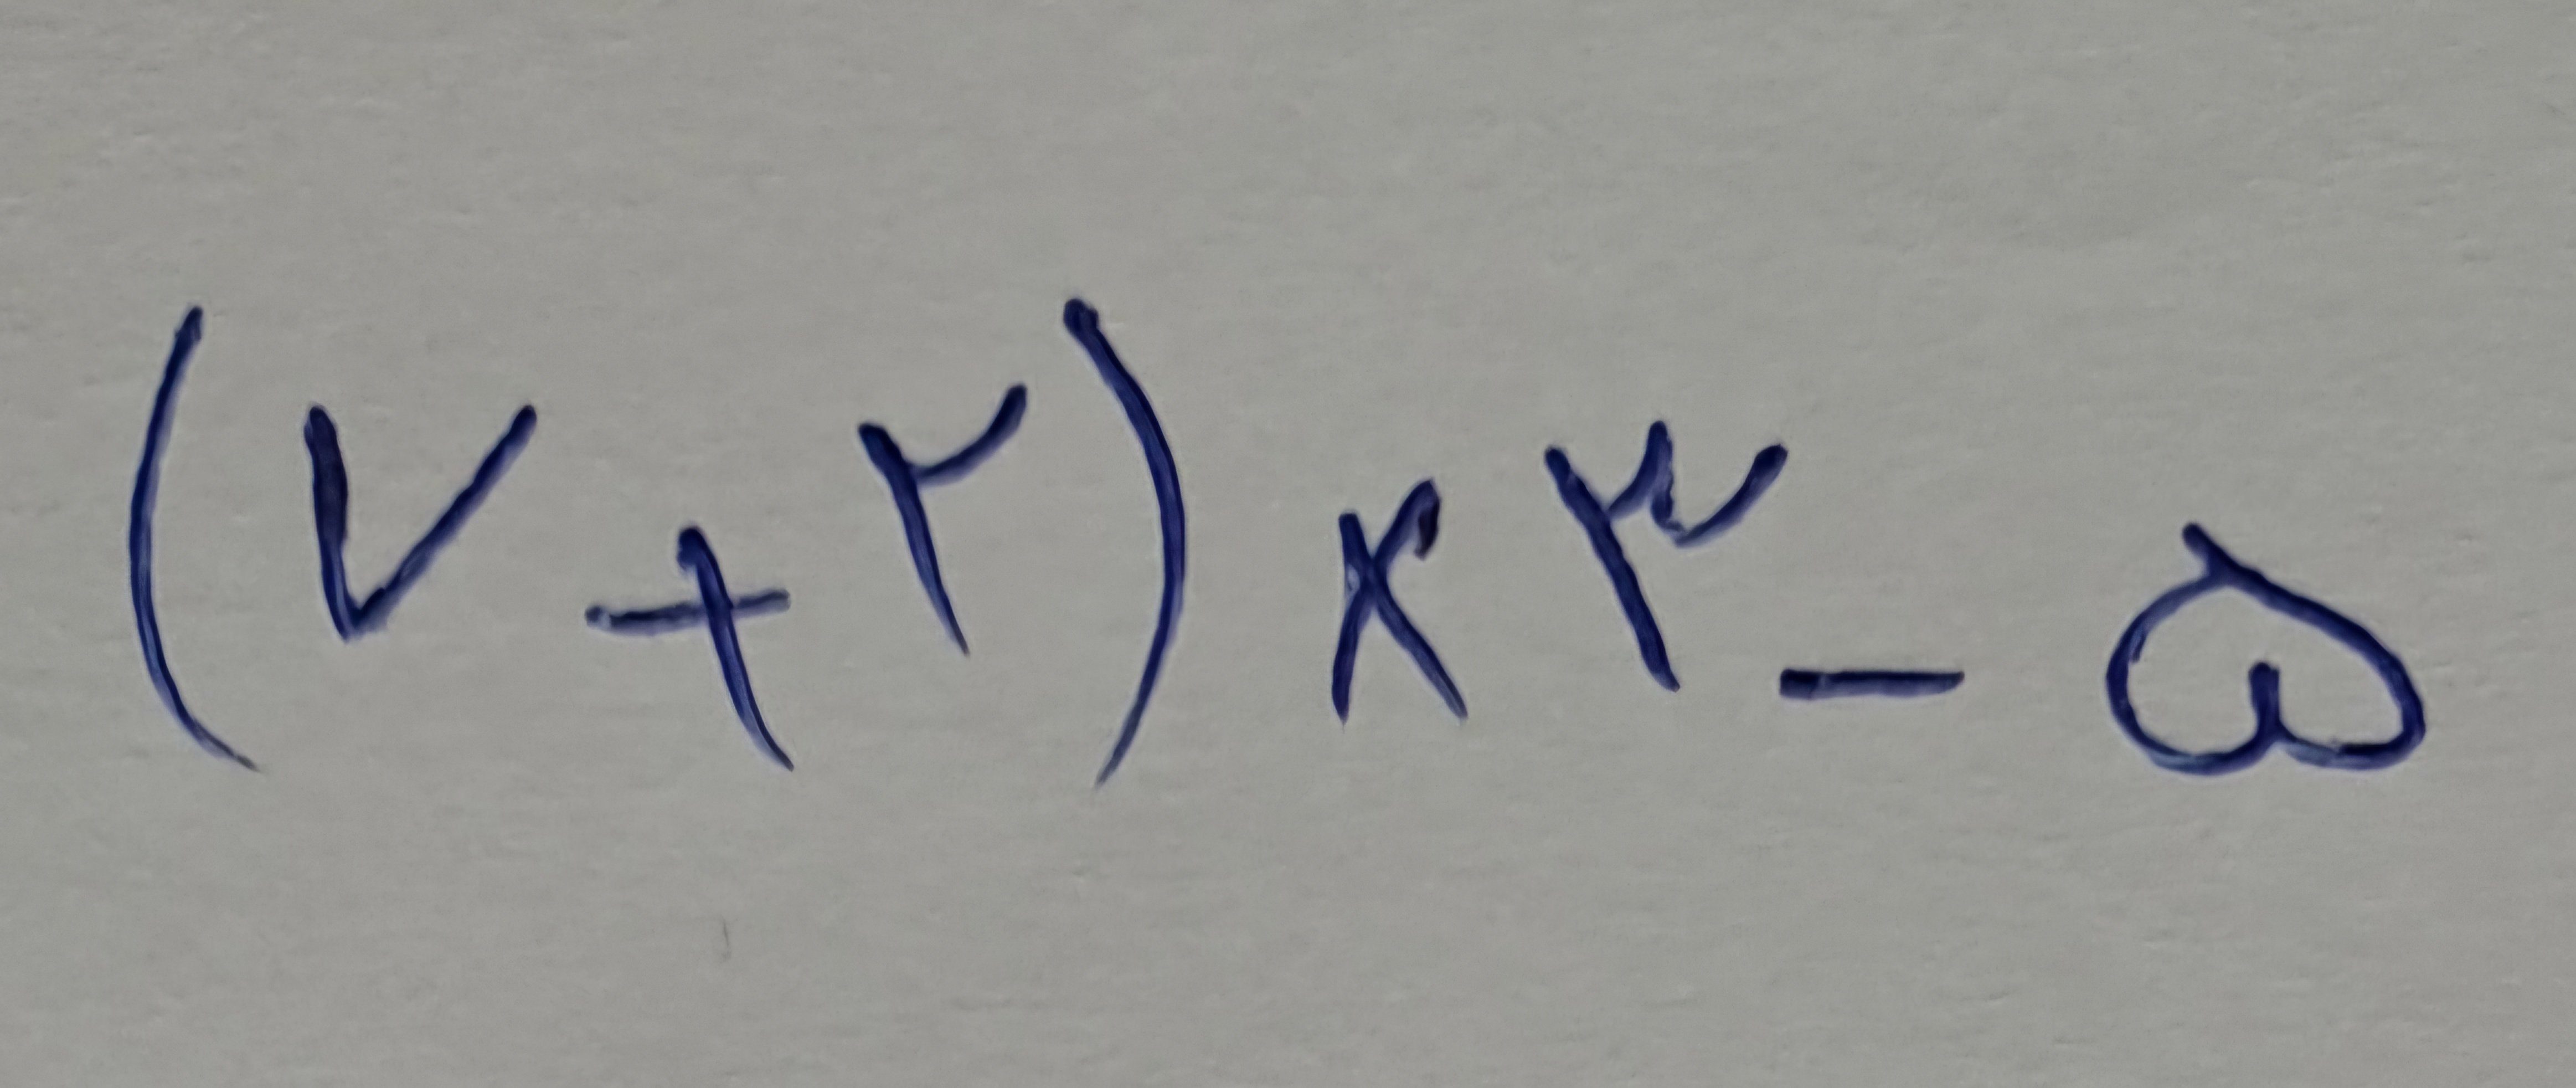 (۷+۲)×۳-۵